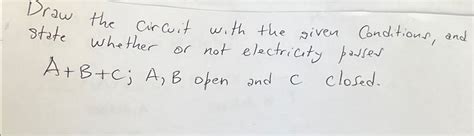 Draw the circuit with the given Conditions, and
state whether or not electricity passes
A+B+C; A, B open and C closed.